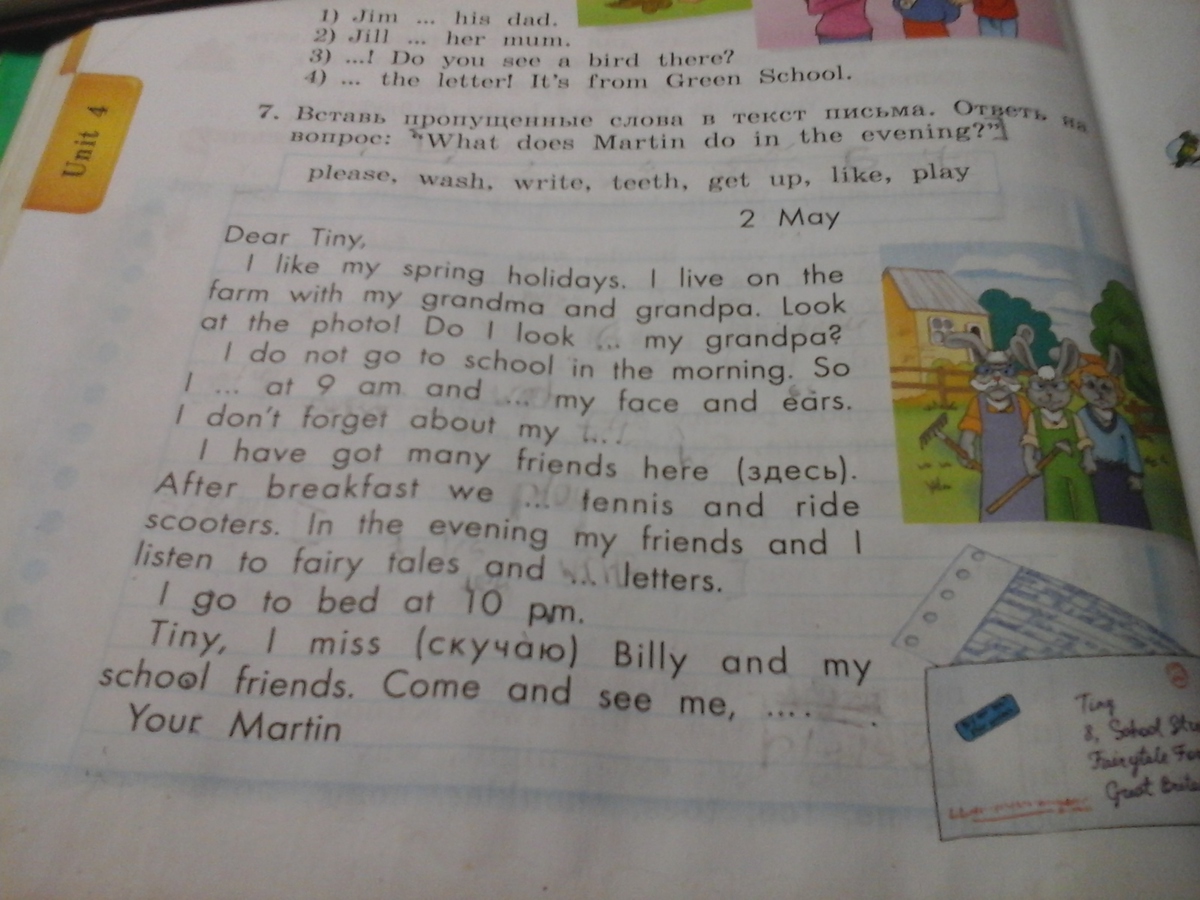 1) Jim ... his dad.
2) Jill ... her mum.
3) ...! Do you see a bird there?
4) ... the letter! It's from Green School.
Unit 4
7. Вставь пропущенные слова в текст письма. Ответь на
вопрос: "What does Martin do in the evening?"
please, wash, write, teeth, get up, like, play
2 May
Dear Tiny,
I like my spring holidays. I live on the
farm with my grandma and grandpa. Look
at the photo! Do I look ... my grandpa?
I do not go to school in the morning. So
I ... at 9 am and ... my face and ears.
I don't forget about my ....
I have got many friends here (здесь).
After breakfast we ... tennis and ride
scooters. In the evening my friends and I
listen to fairy tales and ... letters.
I go to bed at 10 pm.
Tiny, I miss (скучаю) Billy and my
school friends. Come and see me, ....
Your Martin
Tiny
8, School
Fairytale
Great